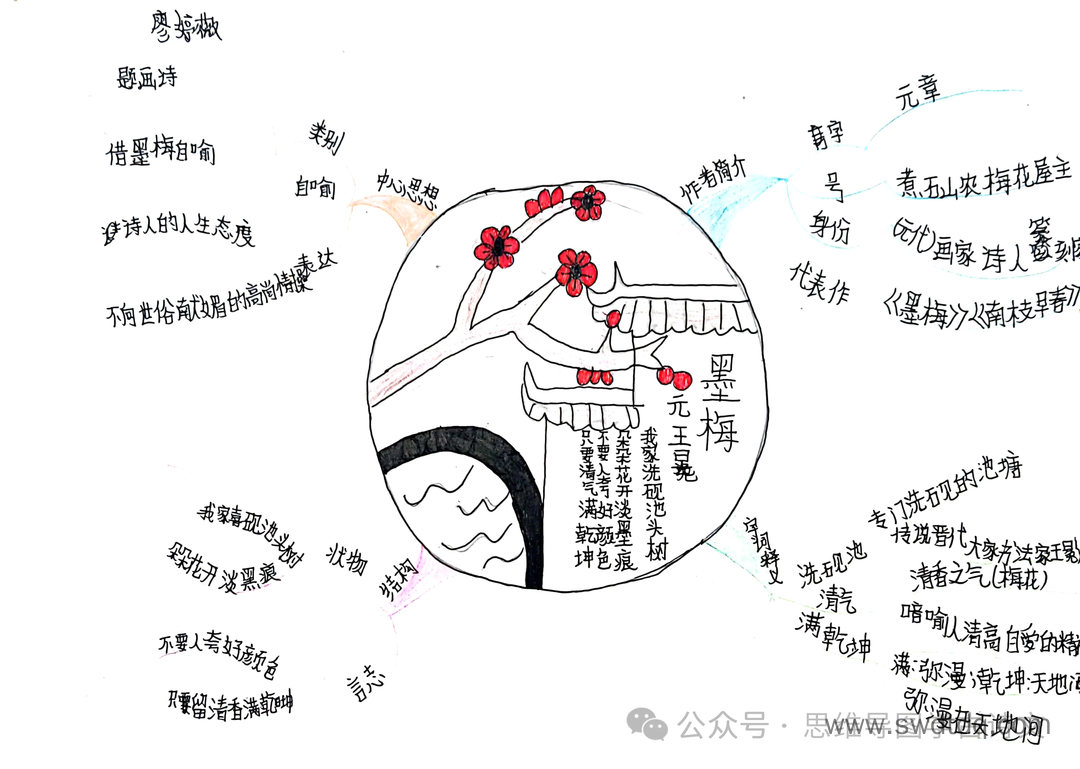 题画诗
类别
借墨梅自喻
自喻
中心思想
诗人的人生态度
表达
不向世俗献媚的高尚情操
作者简介
字
元章
号
煮石山农 梅花屋主
身份
(元代)画家 诗人 篆刻
代表作
《墨梅》《南枝早春》
墨梅
元 王冕
我家洗砚池头树
朵朵花开淡墨痕
不要人夸好颜色
只要清气满乾坤
我家喜砚池头树
朵花开淡黑痕
状物
结构
不要人夸好颜色
只要留清香满乾坤
言志
字词释义
洗砚池
专门洗砚的池塘
传说晋代大家方法家王
清气
清香之气(梅花)
暗喻人清高自爱的精
满乾坤
满:弥漫;乾坤:天地
弥漫在天地间
公众号 · 思维导图
www.sw